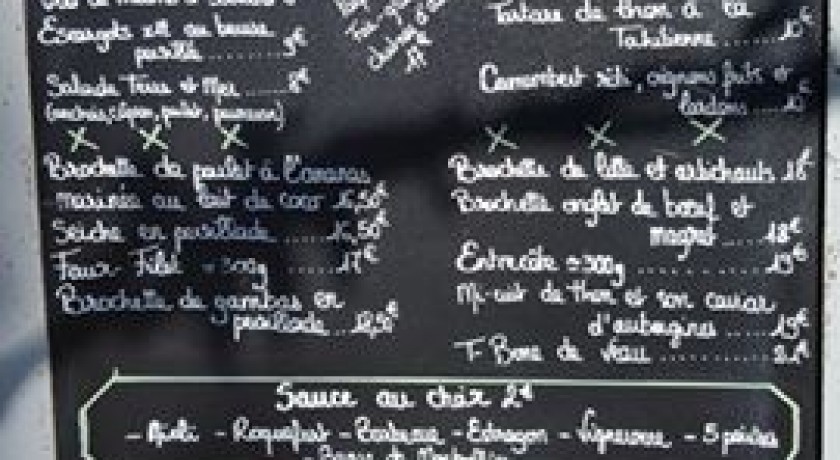 Escargots x12 au beurre
persillé ........ 9€
Salade Terre et Mer ...... 8€
(anchois, , poulet, )
X X X
Brochette de poulet à l'ananas
marinés au lait de coco 16,50€
Seiche en persillade ..... 16,50€
Faux-Filet ≈ 300g ..... 17€
Brochette de gambas en
persillade ... 18,50€
Tartare de thon à la
Tahitienne ....... 10€
Camembert rôti, oignons frits et
lardons ..... 10€
X X X
Brochette de lotte et artichauts 18€
Brochette onglet de bœuf et
magret .... 18€
Entrecôte ≈ 300g ......... 19€
Mi-cuit de thon et son caviar
d'aubergines .... 19€
T-Bone de veau .........
Sauce au choix 2€
- Aïoli - Roquefort - Barbecue - Estragon - Vigneronne - 5 poivres